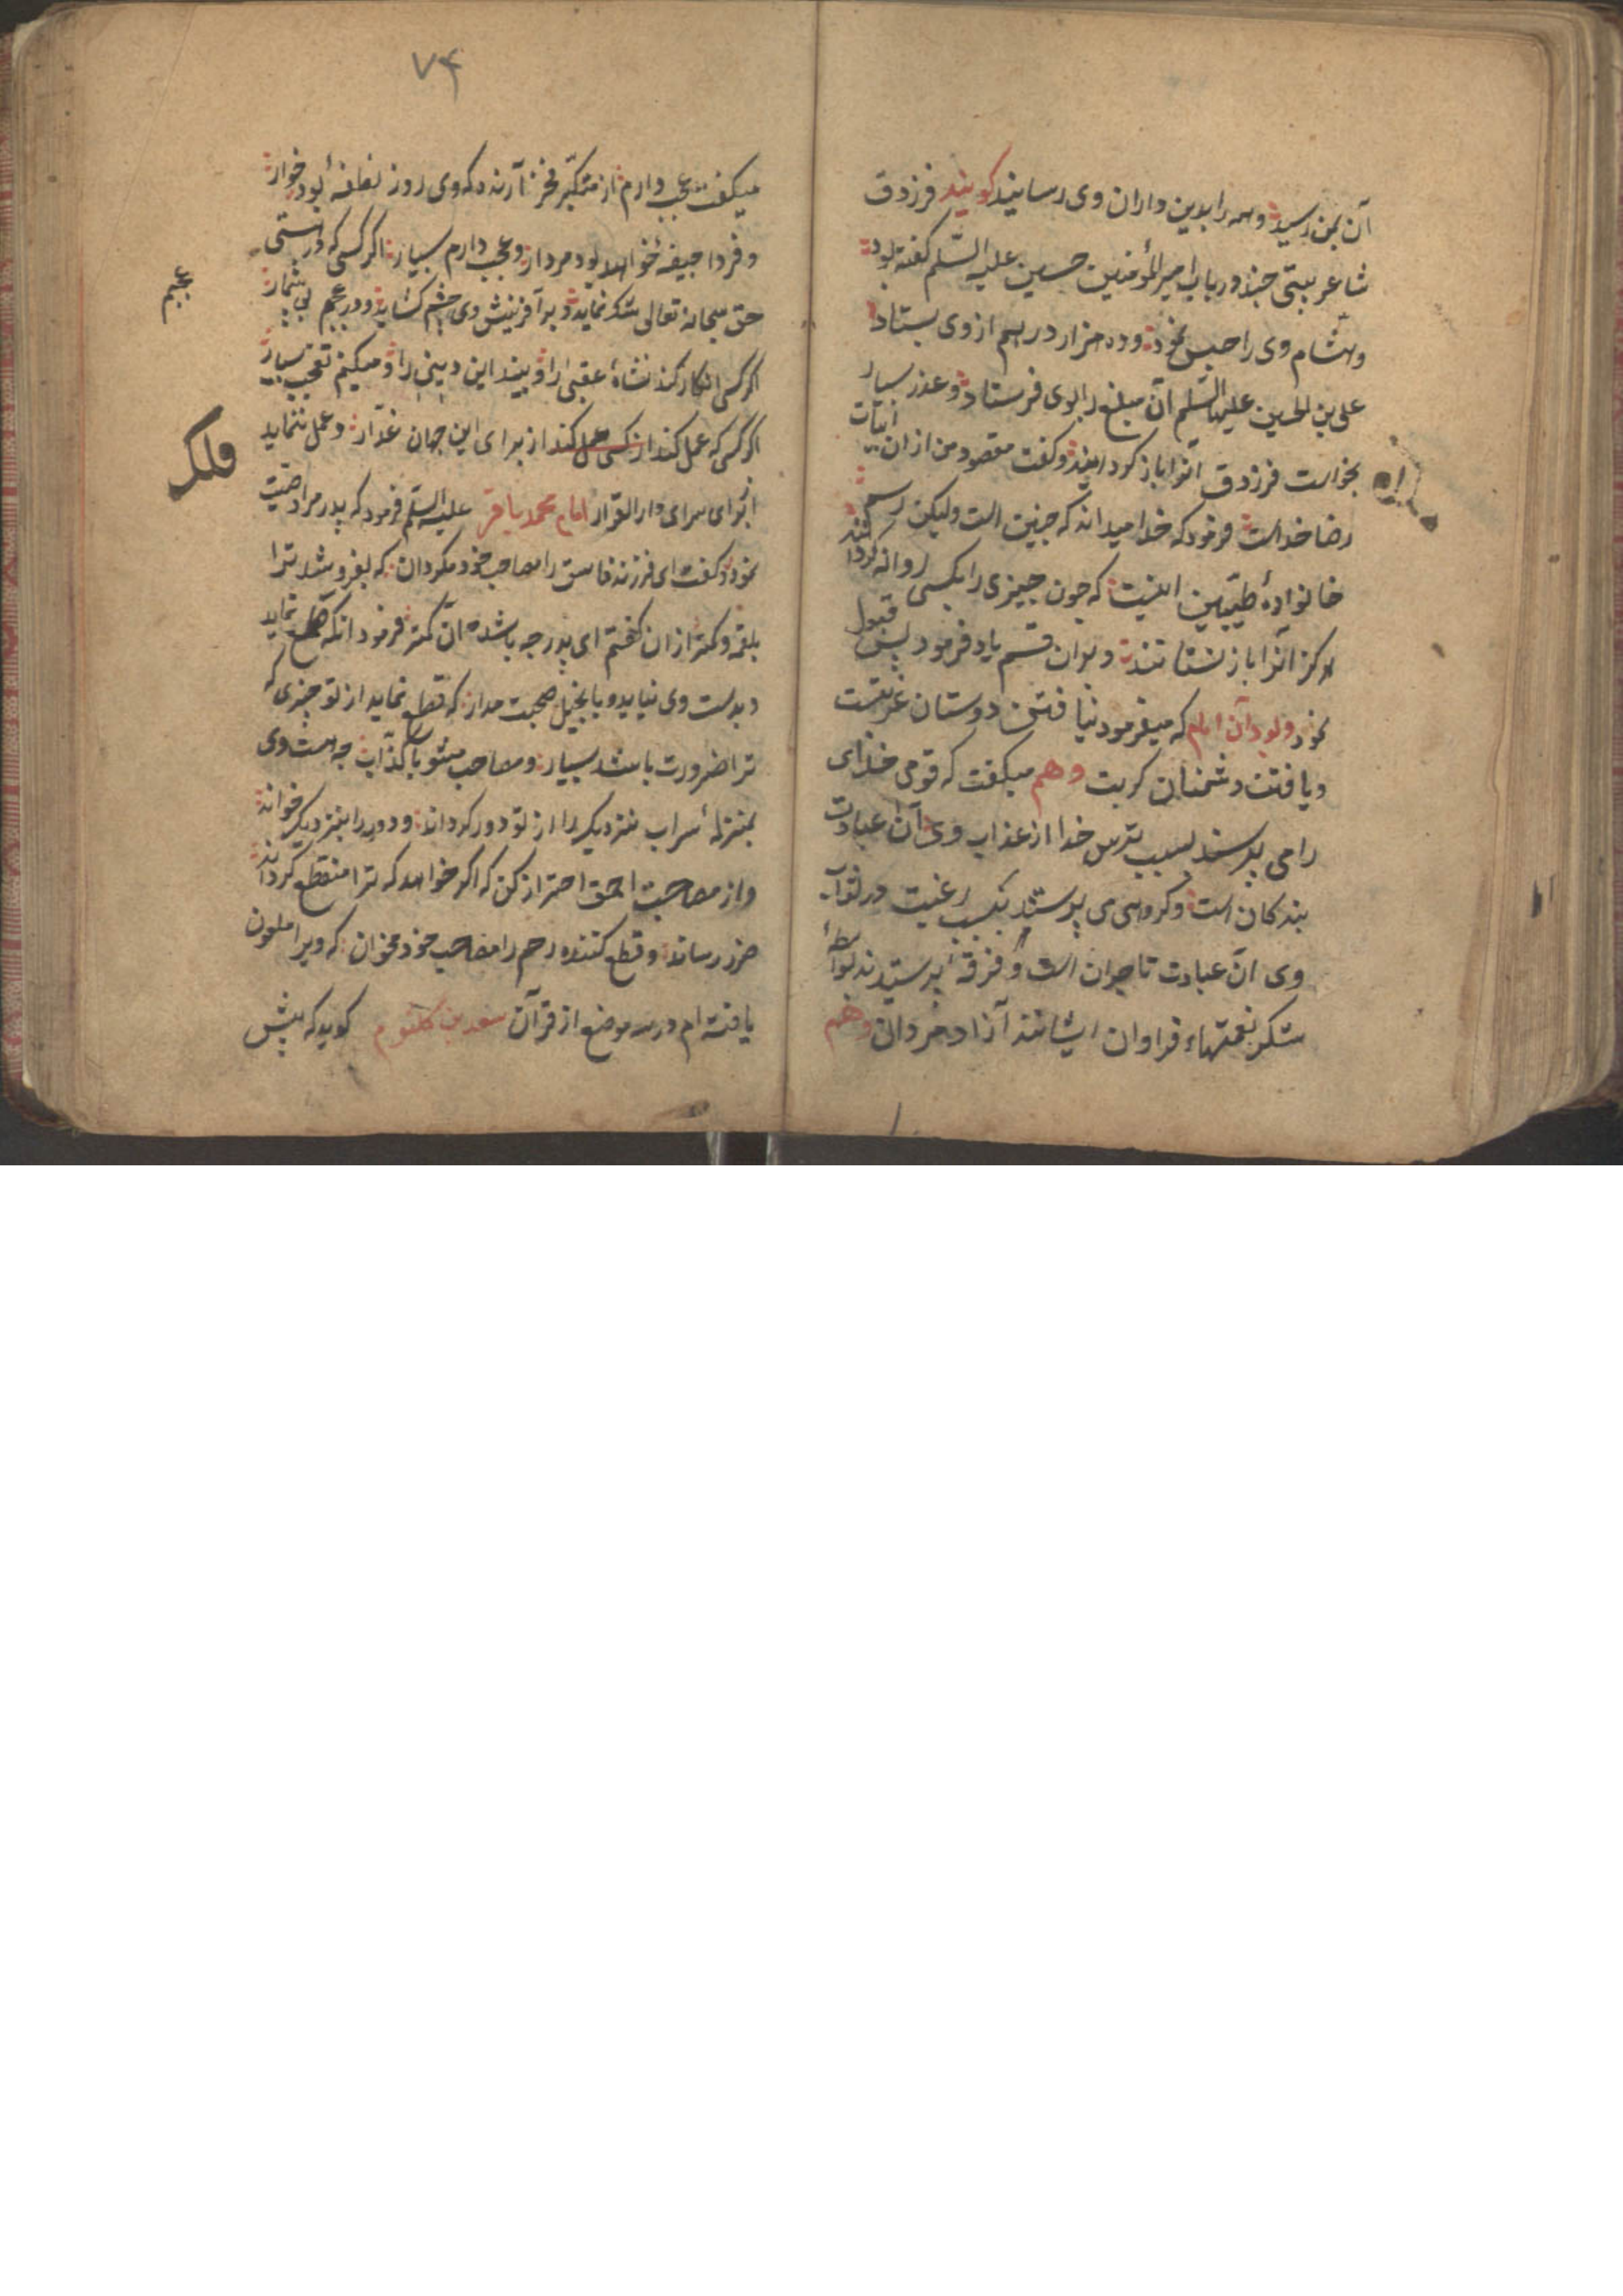 آن بمن رسید و همه را بدین واران وی رسانید کویند فرزدق
شاعر بیتی چند در باب امیر المؤمنین حسین علیه السّلم کفته بود
و هشام وی را حبس نمود و ده هزار درهم از وی بستاد
علی بن الحسین علیهما السّلم آن مبلغ را بوی فرستاد و عذر بسیار
بخواست فرزدق آنرا باز کردانید و کفت مقصود من از ان ابیات
رضا خداست فرمود که خدا میداند که چنین است ولیکن رسم
خانوادهٔ طیّبین اینست که چون چیزی را بکسی روانه کردانند
هرکز آنرا باز نستانند و بران قسم یاد فرمود پس قبول
نمود و بود آن امام که میفرمود نیافتن دوستان غریتست
و یافتن دشمنان کربت وهم میکفت که قومی خدای
را می پرستند بسبب ترس خدا از عذاب وی آن عبادت
بندکان است و کروهی می پرستند بسبب رغبت در ثواب
وی آن عبادت تاجران است و فرقهٔ پرستیدند بواسطهٔ
شکر نعمتهاء فراوان ایشانند آزاد مردان وهم
۷۴
میکفت عجب دارم از متکبّر فخر آرنده که وی روز نطفهٔ بود خوار
و فردا جیفهٔ خواهد بود مردار و عجب دارم بسیار اکر کسی که در هستی
حق سبحانه تعالی شک نماید و بر آفرینش وی چشم کشاید و در عجبم بی شمار
عجبم
اکر کسی انکار کند نشاهٔ عقبی را و بیند این دینی را و میکنم تعجب بسیار
اکر کسی که عمل کند از کسی عمل کند از برای این جهان غدّار و عمل ننماید
فلک
از برای سرای دار القرار امام محمد باقر علیه السّلم فرمود که پدر مرا وصیّت
نمود و کفت ای فرزند فاسق را مصاحب خود مکردان که بفروشد ترا
بلقمه و کمتر از ان کفتم ای پدر چه باشد آن کمتر فرمود آنکه طمع نماید
و بدست وی نیاید و با بخیل صحبت مدار که قطع نماید از تو چیزی که
ترا ضرورت باشد بسیار و مصاحب مشو با کذّاب چه هست وی
بمنزلهٔ سراب نزدیک را از تو دور کرداند و دور را بنزدیک خواند
و از مصاحبت احمق احتراز کن که اکر خواهد که ترا منقطع کرداند
ضرر رساند و قطع کننده رحم را مصاحب خود مخوان که ویرا ملعون
یافته ام در سه موضع از قرآن سعد بن کلثوم کوید که پیش